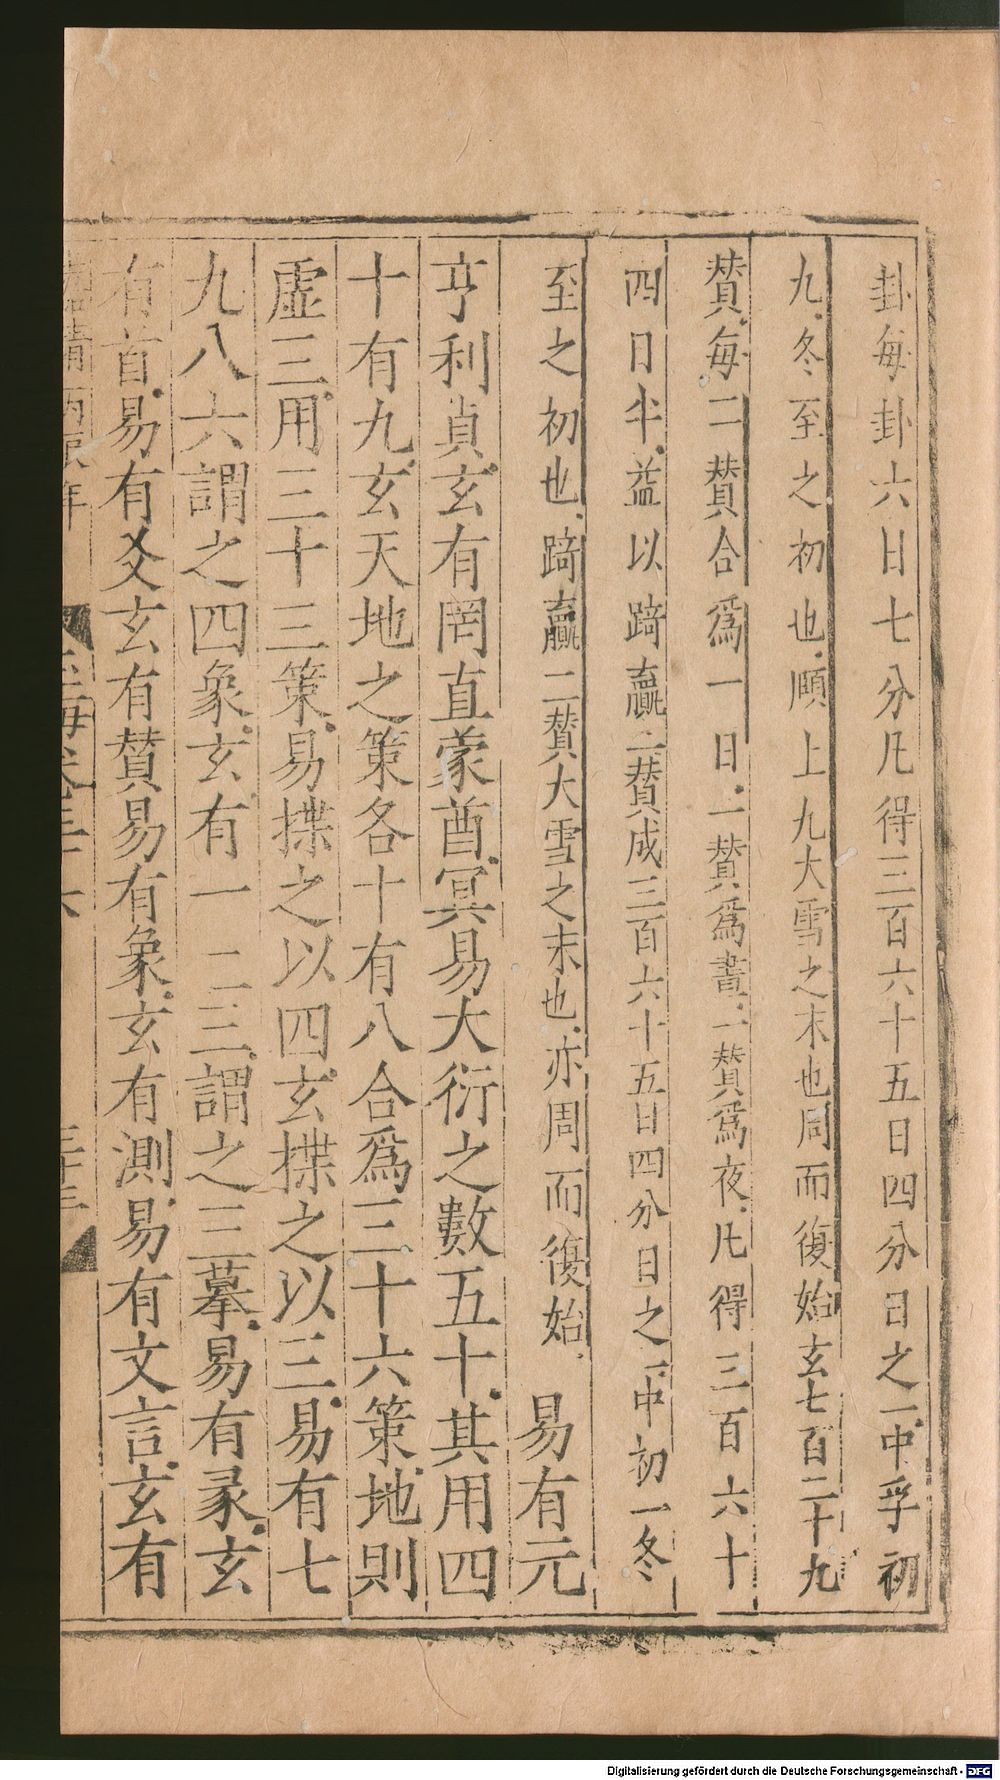 卦每卦六日七分凡得三百六十五日四分日之一中孚初
九冬至之初也頤上九大雪之末也周而復始玄七百二十九
賛每二賛合爲一日一賛爲晝一賛爲夜凡得三百六十
四日半益以踦贏二賛成三百六十五日四分日之一中初一冬
至之初也踦贏二賛大雪之末也亦周而復始 易有元
亨利貞玄有罔直蒙酋冥易大衍之數五十其用四
十有九玄天地之策各十有八合爲三十六策地則
虛三用三十三策易揲之以四玄揲之以三易有七
九八六謂之四象玄有一二三謂之三摹易有彖玄
有首易有爻玄有賛易有象玄有測易有文言玄有
年
玉海卷三十六
Digitalisierung gefördert durch die Deutsche Forschungsgemeinschaft - DFG